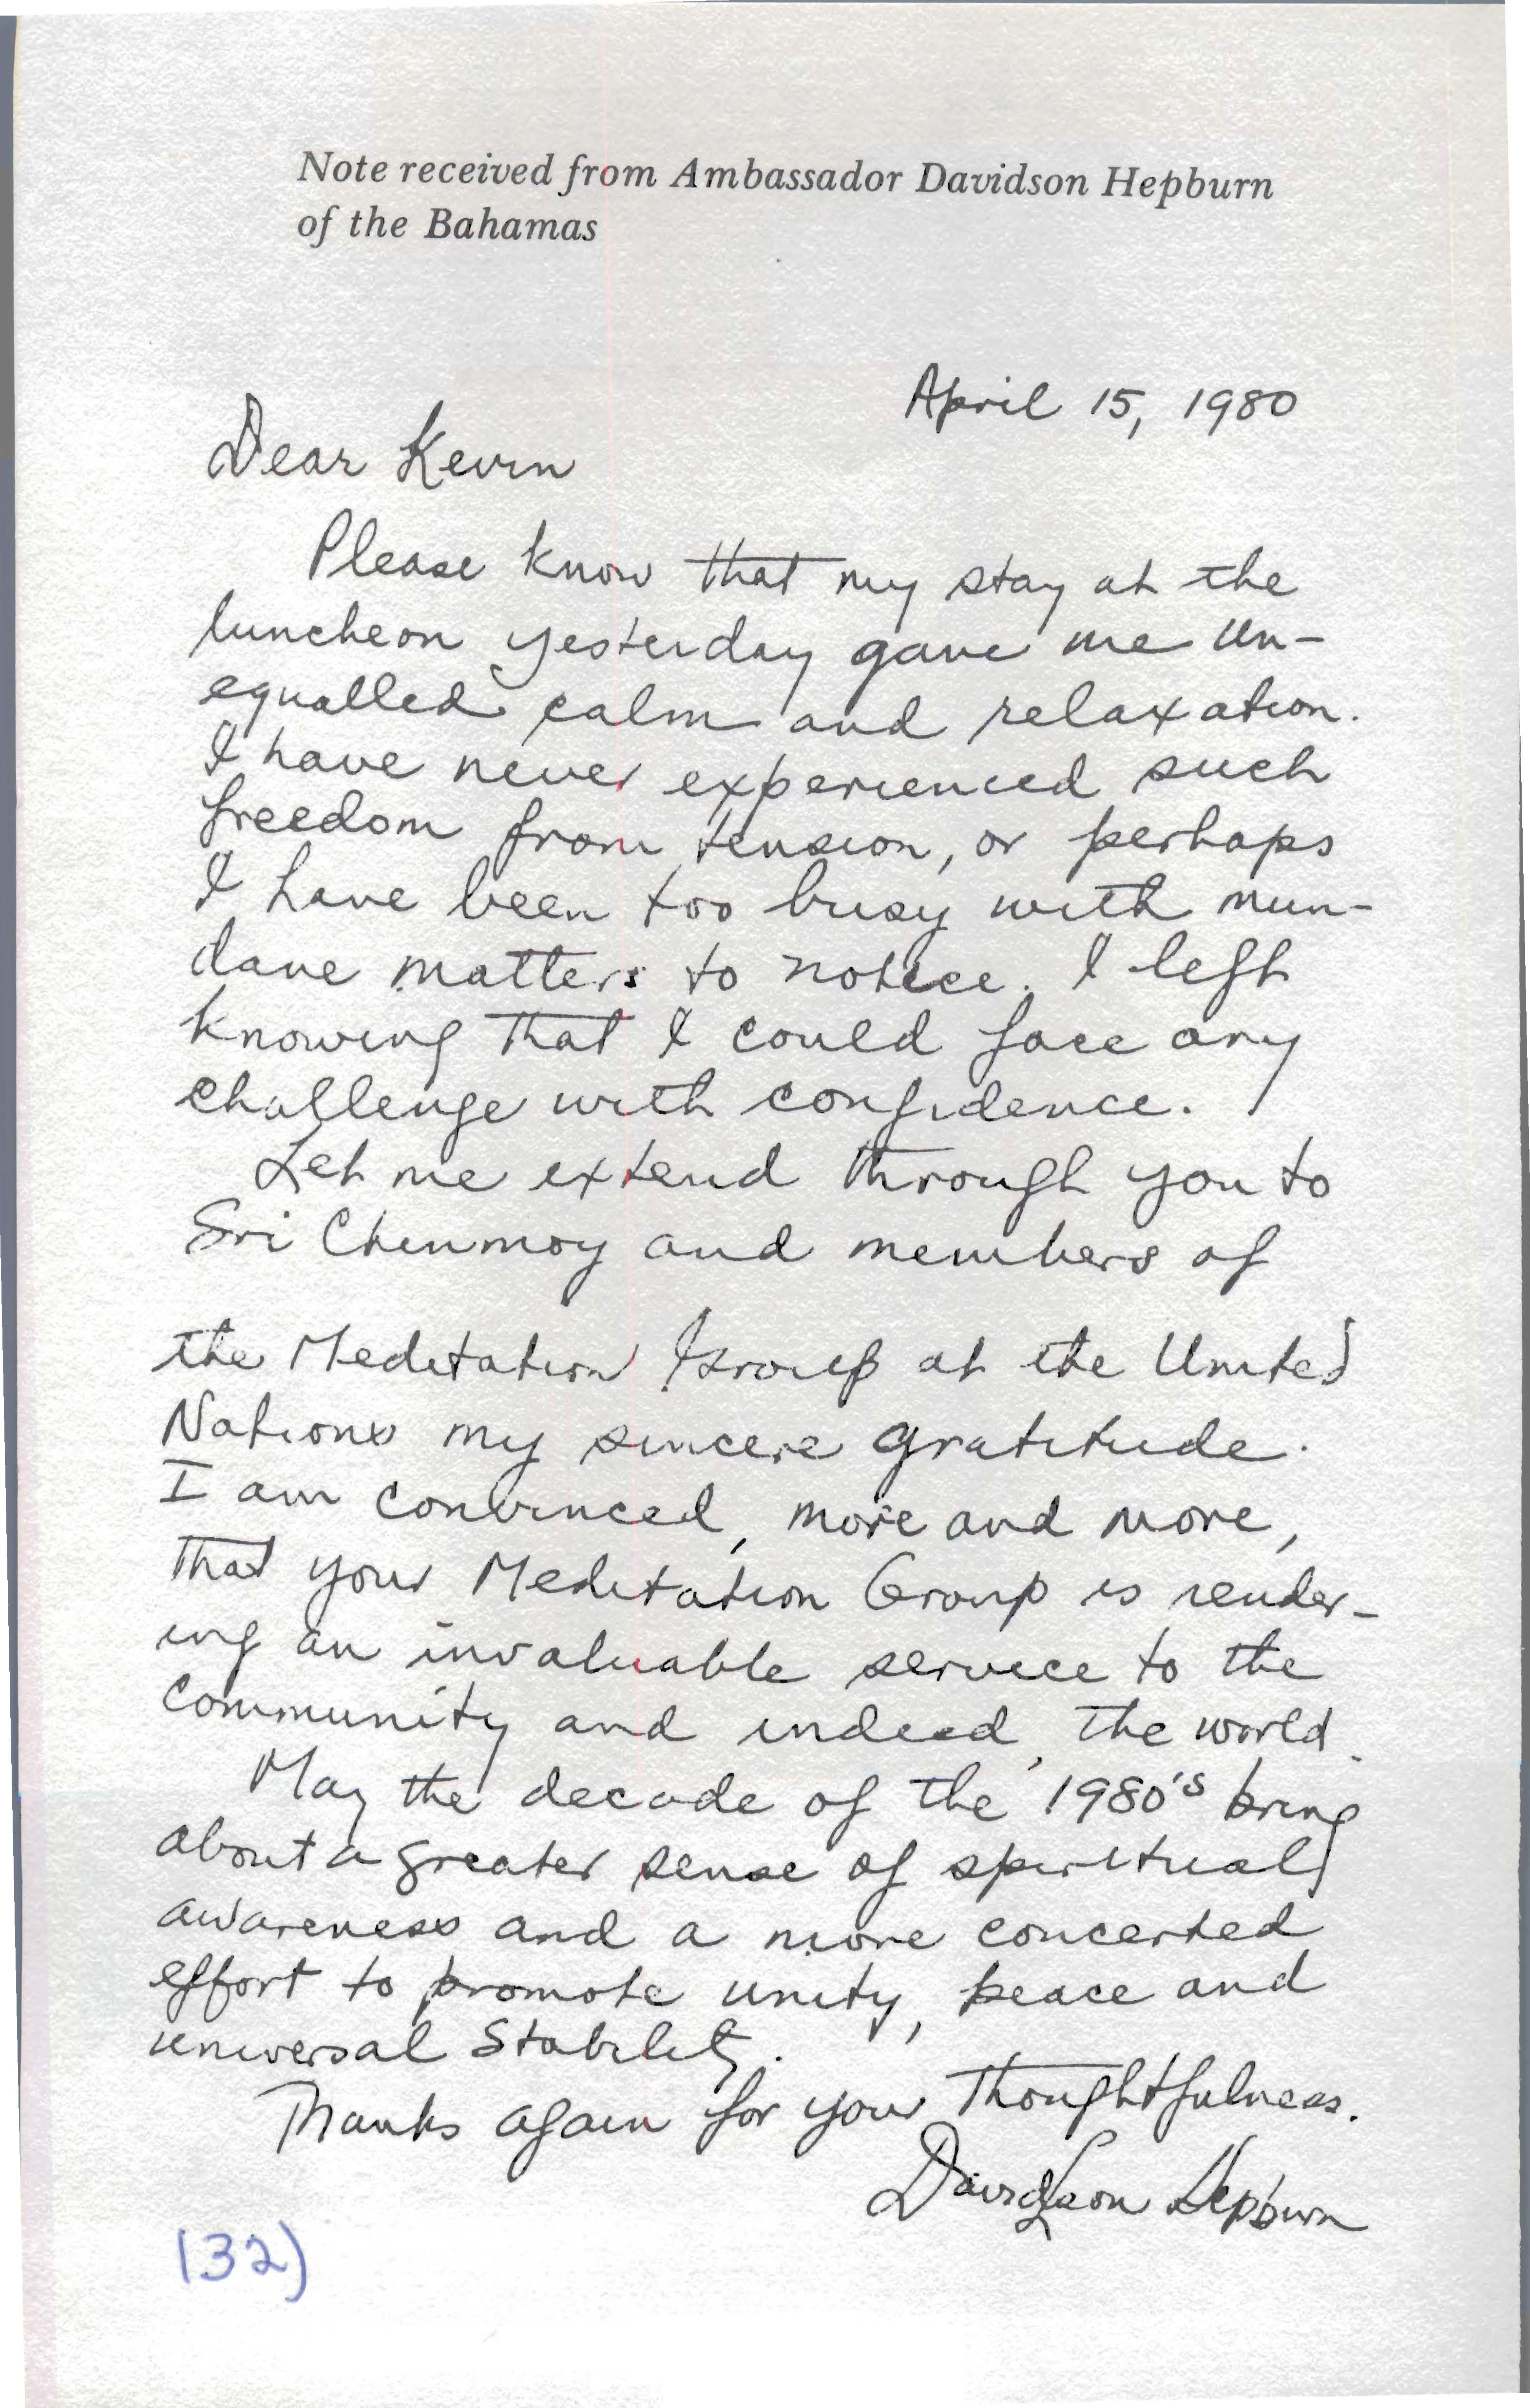 Note received from Ambassador Davidson Hepburn
of the Bahamas
April 15, 1980
Dear Kevin
Please know that my stay at the
luncheon yesterday gave me un-
equalled calm and relaxation.
I have never experienced such
freedom from tension, or perhaps
I have been too busy with mun-
dane matters to notice. I left
knowing that I could face any
challenge with confidence.
Let me extend through you to
Sri Chinmoy and members of
the Meditation Group at the United
Nations my sincere gratitude.
I am convinced, more and more,
that your Meditation Group is render-
ing an invaluable service to the
community and indeed, the world.
May the decade of the 1980's bring
about a greater sense of spiritual
awareness and a more concerted
effort to promote unity, peace and
universal stability.
Thanks again for your thoughtfulness.
Davidson Hepburn
(32)